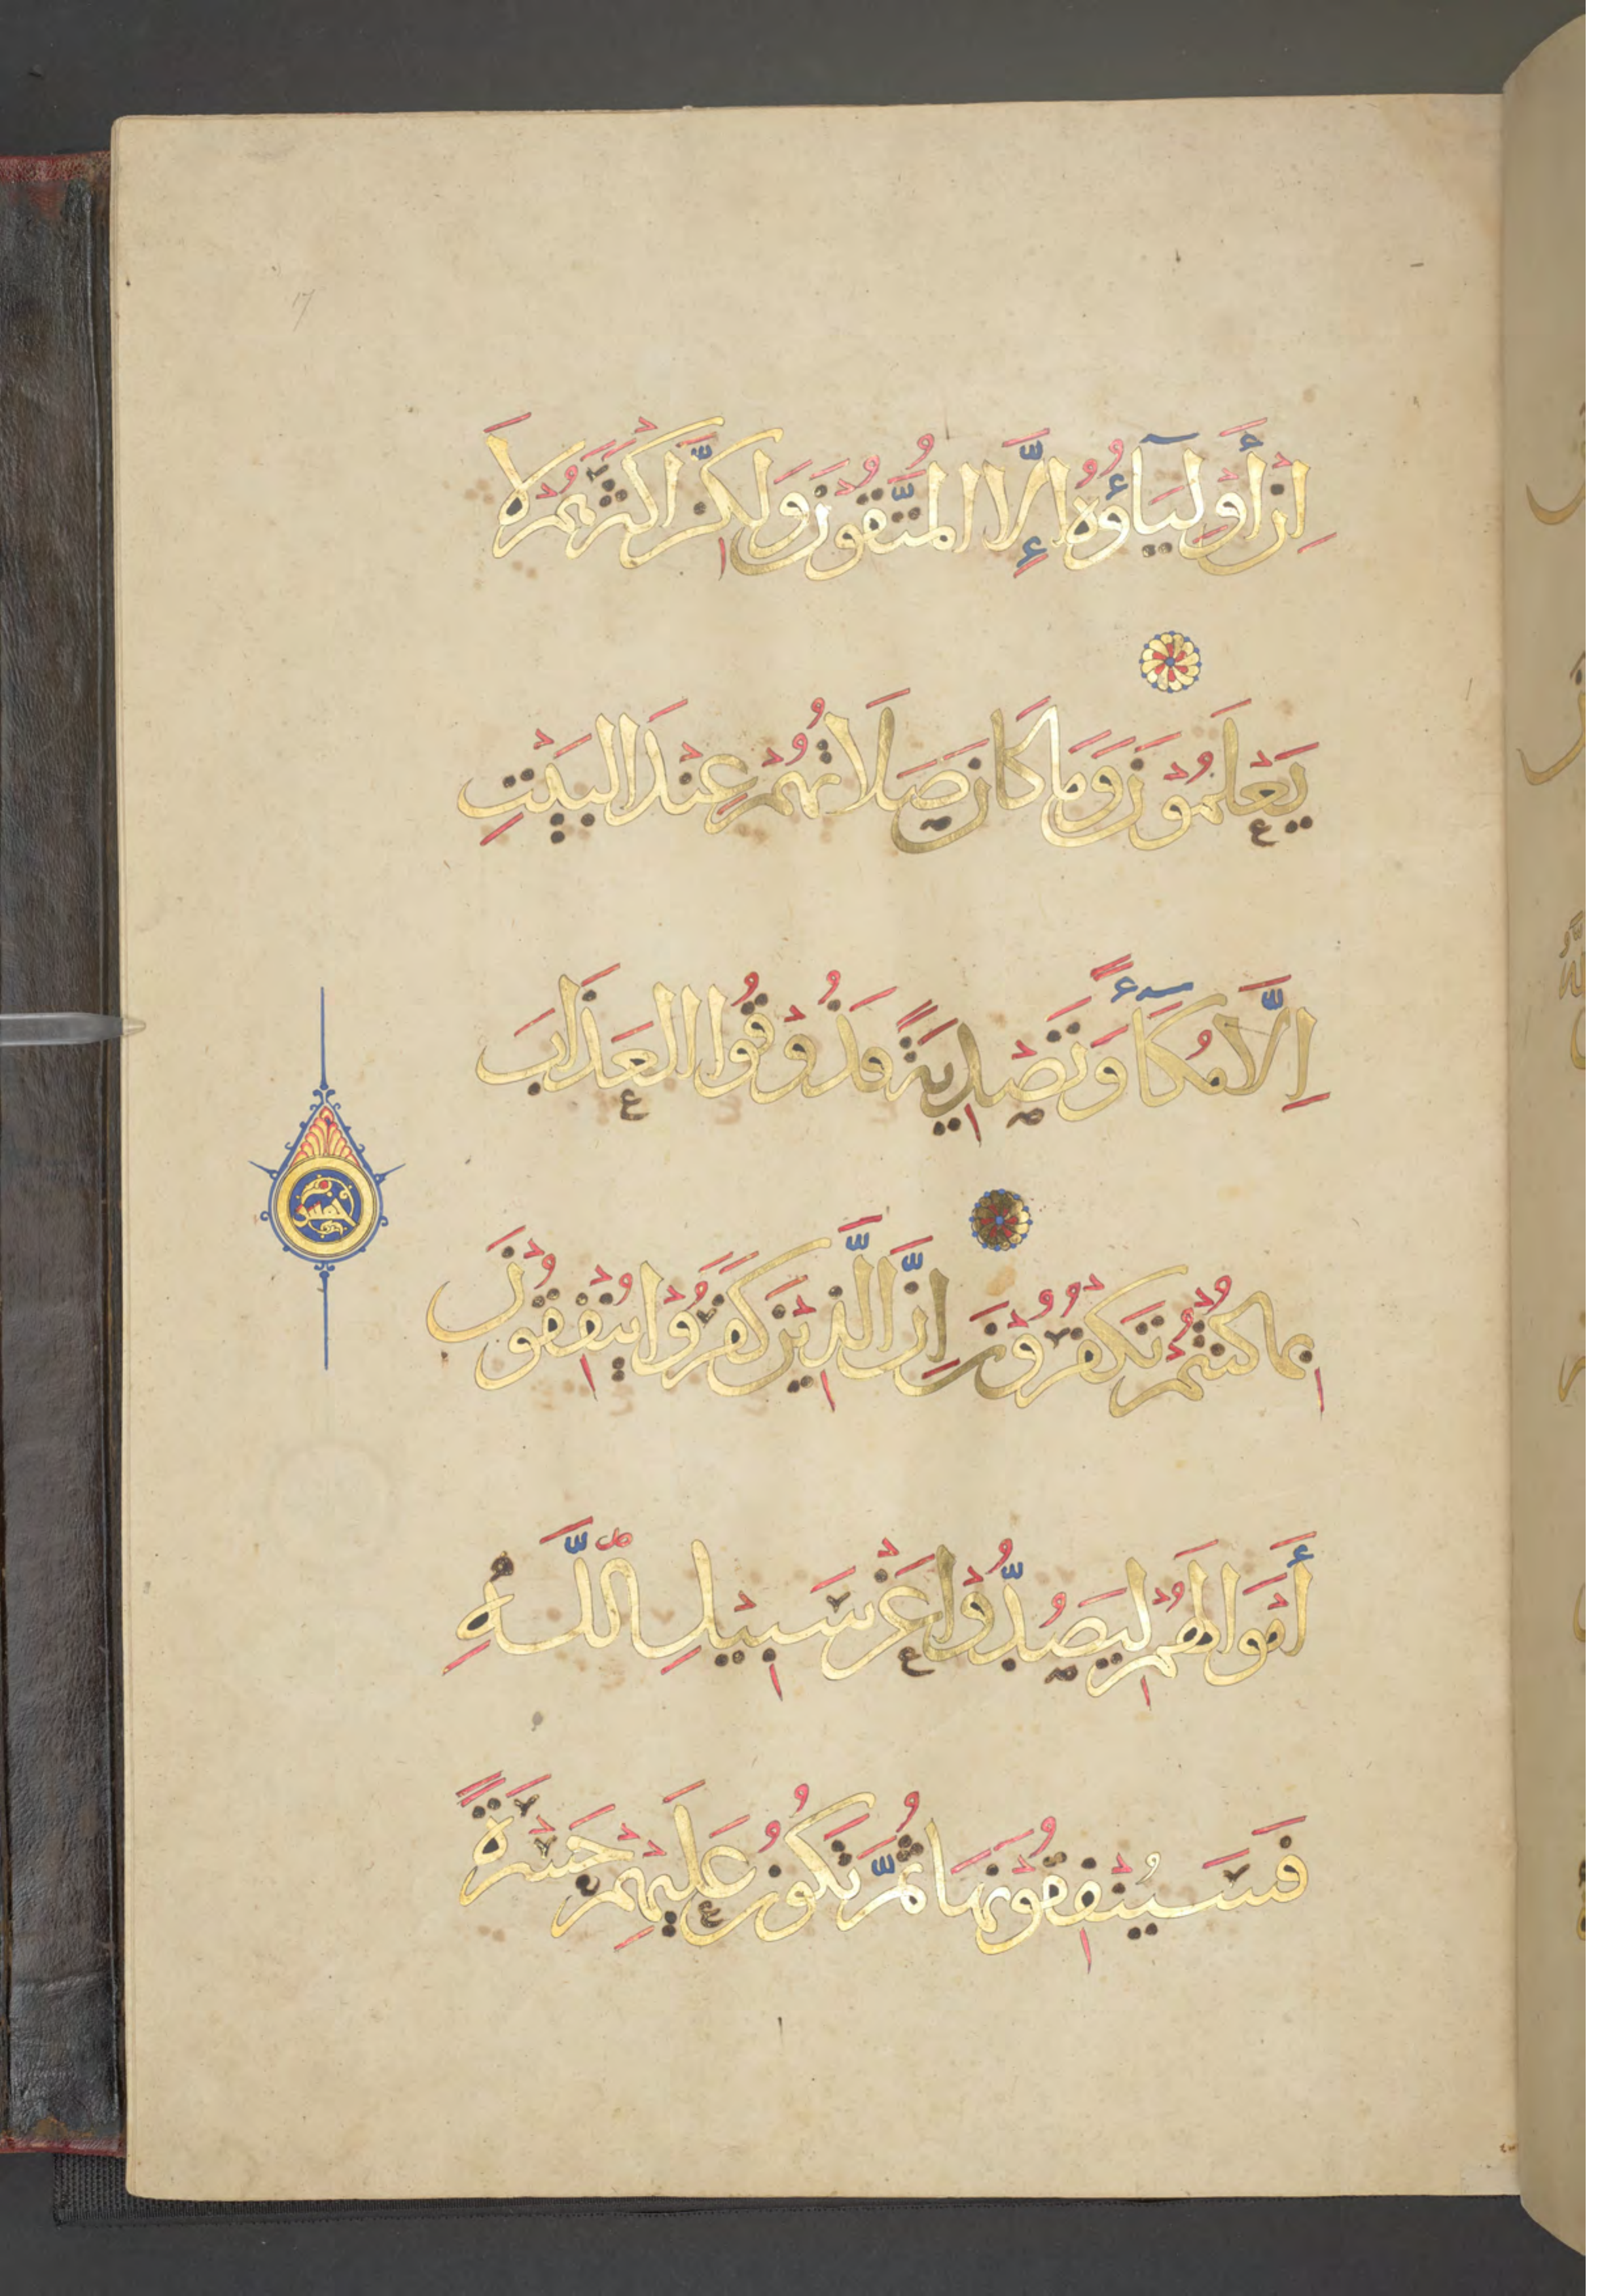 إِنْ أَوْلِيَآؤُهُ إِلَّا الْمُتَّقُوْنَ وَلَكِنَّ اَكْثَرَهُمْ لَا
يَعْلَمُوْنَ وَمَا كَانَ صَلَاتُهُمْ عِنْدَ الْبَيْتِ
اِلَّا مُكَآءً وَتَصْدِيَةً فَذُوْقُوا الْعَذَابَ
بِمَا كُنْتُمْ تَكْفُرُوْنَ اِنَّ الَّذِيْنَ كَفَرُوْا يُنْفِقُوْنَ
أَمْوَالَهُمْ لِيَصُدُّوْا عَنْ سَبِيْلِ اللَّهِ
فَسَيُنْفِقُوْنَهَا ثُمَّ تَكُوْنُ عَلَيْهِمْ حَسْرَةً
خمس
١٧